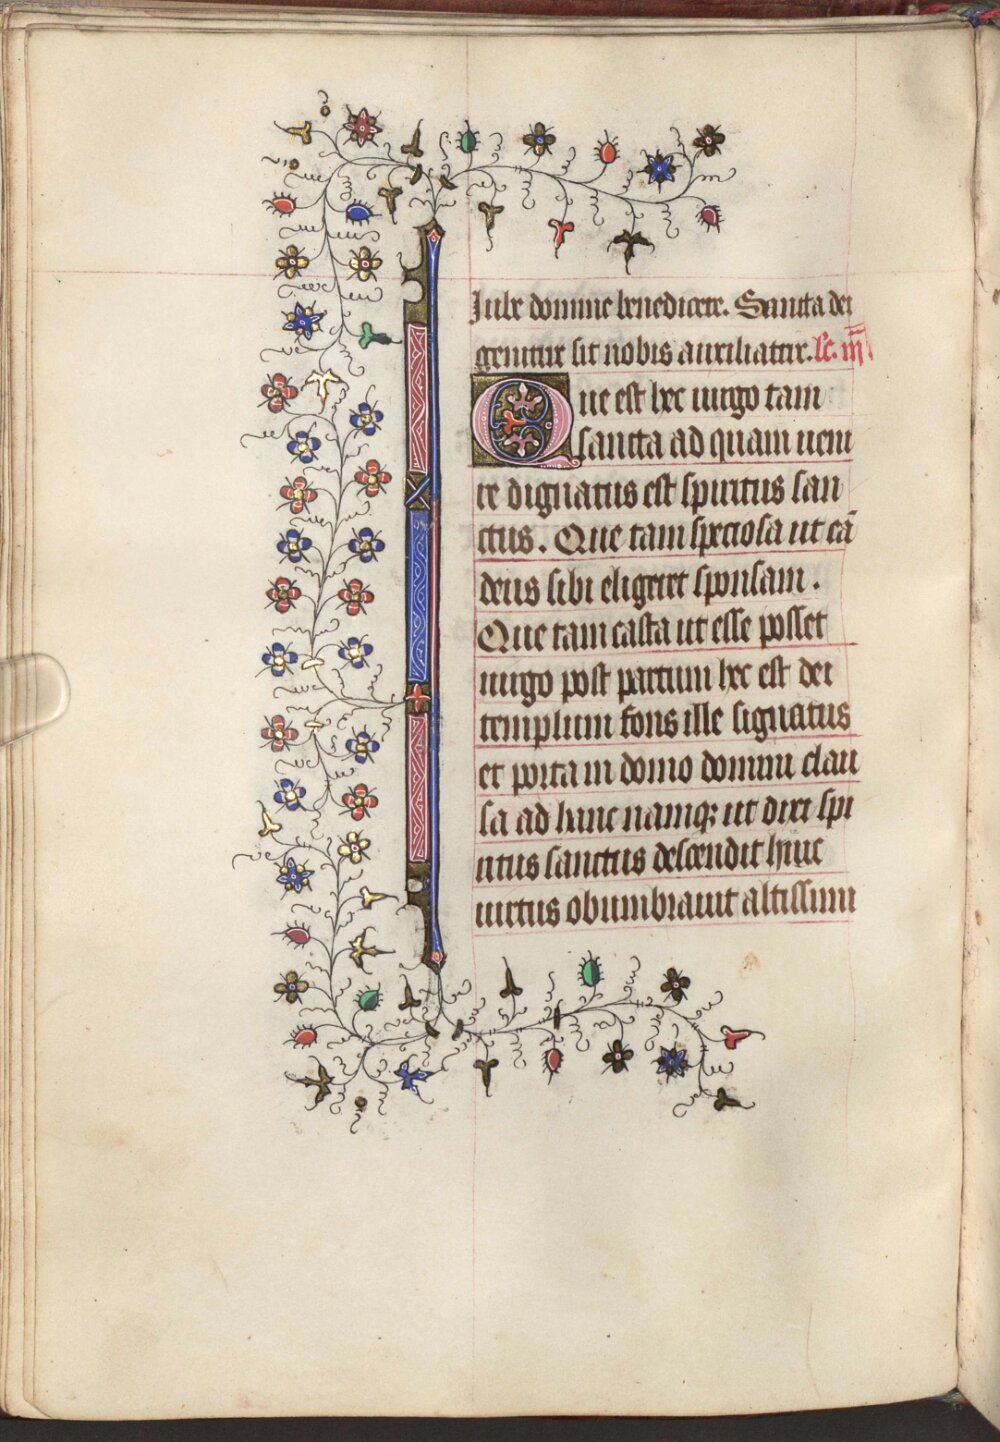 Iube domine benedicere. Sancta dei
genitrix sit nobis auxiliatrix. lc. iii
Que est hec uirgo tam
sancta ad quam ueni
re dignatus est spiritus san
ctus. Que tam speciosa ut eā
deus sibi eligeret sponsam.
Que tam casta ut esse posset
uirgo post partum hec est dei
templum fons ille signatus
et porta in domo domini clau
sa ad hanc namq; ut dixi spi
ritus sanctus descendit huic
uirtus obumbrauit altissimi